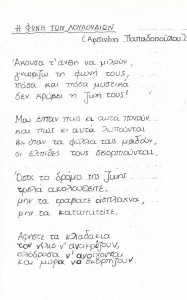 Η ΦΩΝΗ ΤΩΝ ΛΟΥΛΟΥΔΙΩΝ
(Αρσινόη Παπαδοπούλου)
Άκουσα τ' άνθη να μιλούν,
γνωρίζω τη φωνή τους,
πόσα και πόσα μυστικά
δεν κρύβει η ζωή τους!
Μου είπαν πως κι αυτά πονούν
και πως κι αυτά λυπούνται
αν όταν τα φύλλα τους μαδούν,
οι ελπίδες τους σκορπιούνται.
Όσοι το δρόμο της ζωής
τρελά ακολουθείτε,
μην τα τραβάτε άσπλαχνα,
μην τα καταπατείτε.
Αφήστε τα κλαδάκια
τον ήλιο ν' αντικρίζουν,
ολόδροσα ν' ανοίγονται
και μύρα να σκορπίζουν.